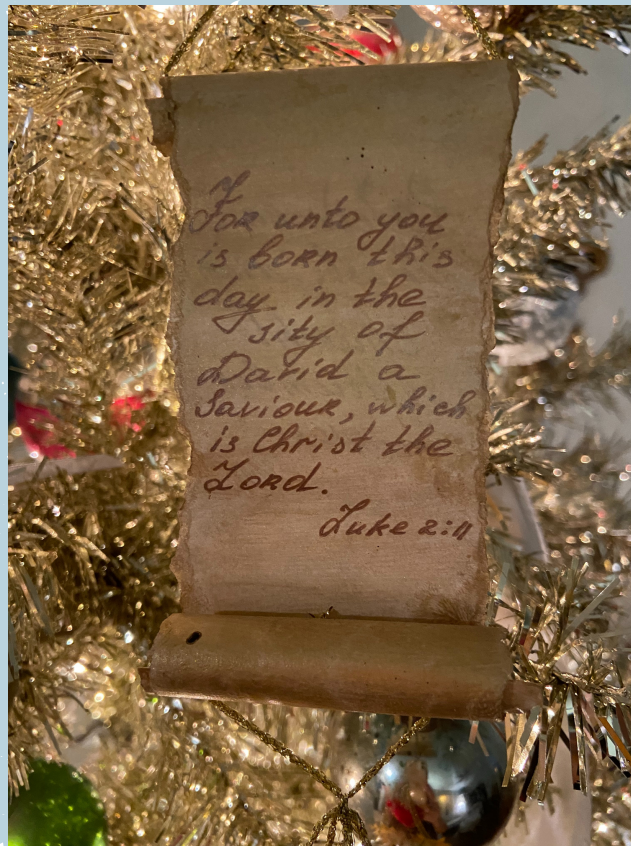 For unto you
is born this
day in the
sity of
David a
Saviour, which
is Christ the
Lord.
Luke 2:11